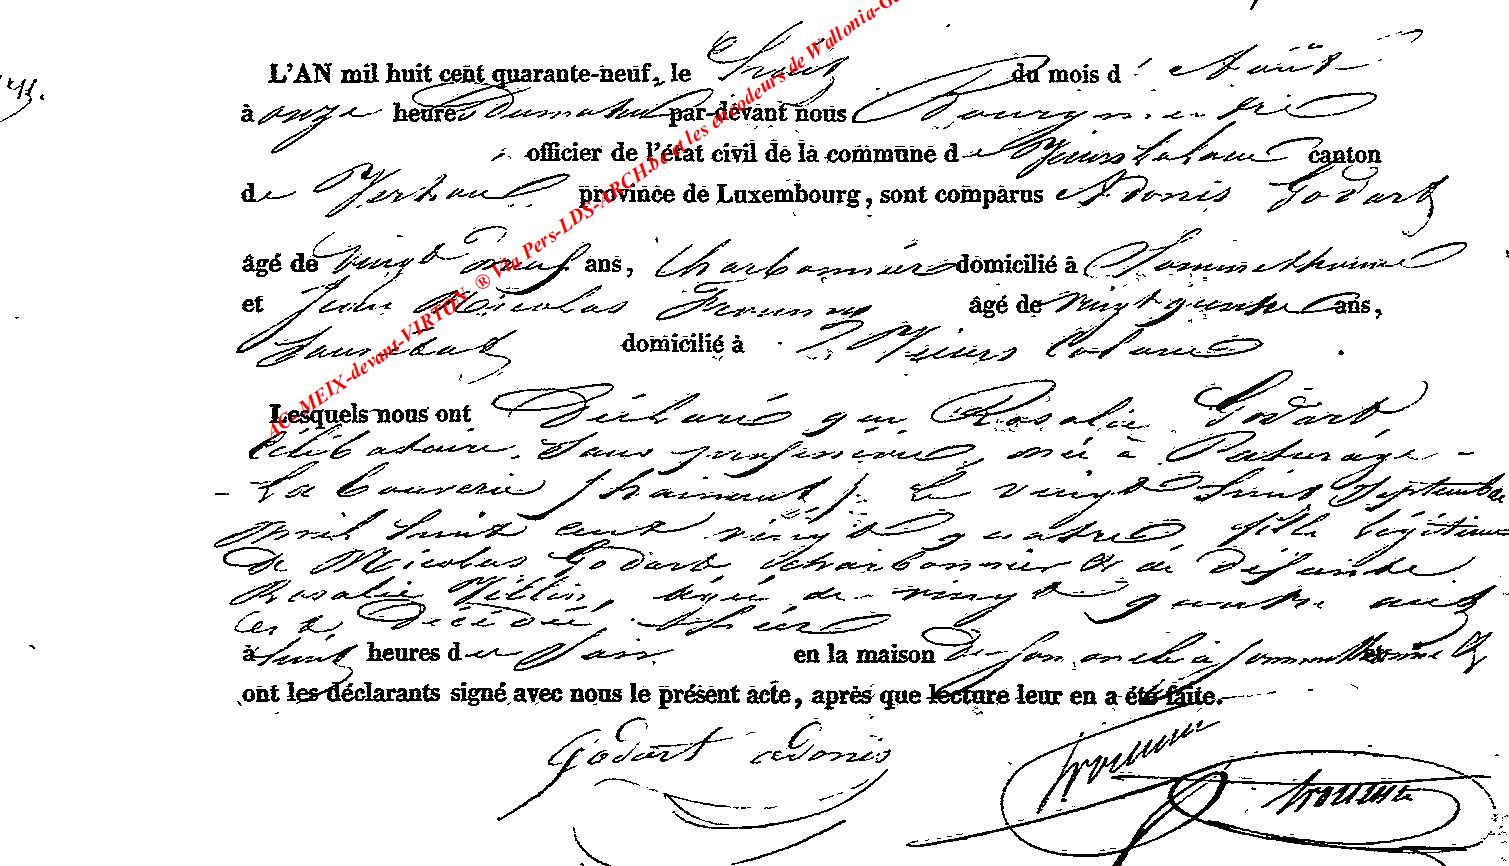 L'AN mil huit cent quarante-neuf, le huit du mois d' Août
à onze heures du matin par-devant nous Bourgmestre
officier de l'état civil de la commune de canton
de Virton province de Luxembourg, sont comparus Adonis Godart
âgé de vingt neuf ans, charbonnier domicilié à Sommethonne
et Jean Nicolas âgé de vingt quatre ans,
domicilié à
Lesquels nous ont Déclaré que Rosalie Godart,
célibataire, sans profession, née à Paturage -
- La bouverie (hainaut). le vingt huit Septembre
mil huit cent vingt quatre, fille légitime
de Nicolas Godart charbonnier & de défunte
Rosalie agée de vingt quatre ans
est décédée hier
à huit heures du soir en la maison de son oncle à Sommethonne Et
ont les déclarants signé avec nous le présent acte, après que lecture leur en a été faite.
Godart adonis
AC - MEIX-devant-VIRTON ® Via Pers-LDS-ARCH.be et les encodeurs de Wallonia-G